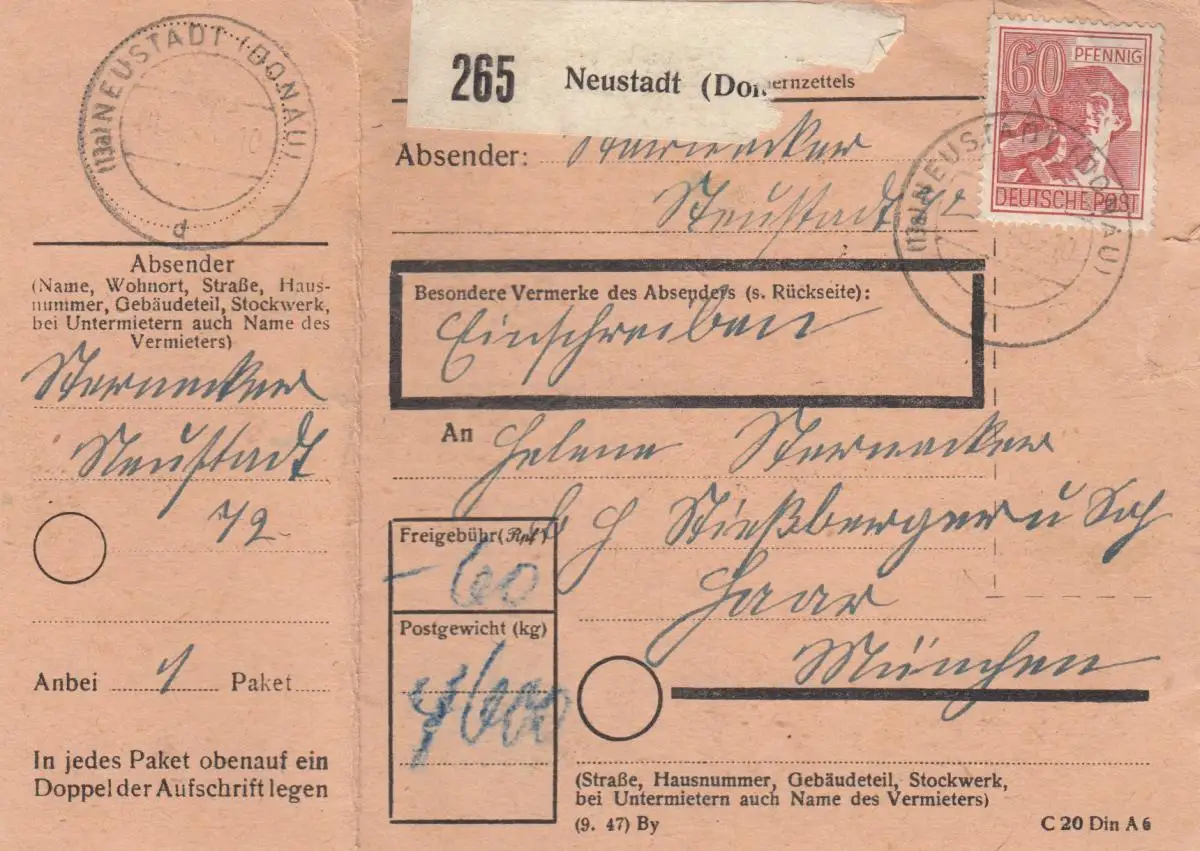 (13a) NEUSTADT (DONAU)
d
Absender
(Name, Wohnort, Straße, Haus-
nummer, Gebäudeteil, Stockwerk,
bei Untermietern auch Name des
Vermieters)
Sternecker
Neustadt
72
Anbei 1 Paket
In jedes Paket obenauf ein
Doppel der Aufschrift legen
265 Neustadt (Don
ernzettels
Absender: Sternecker
Neustadt 72
60 PFENNIG
DEUTSCHE POST
(13a) NEUSTADT (DONAU)
Besondere Vermerke des Absenders (s. Rückseite):
Einschreiben
An Helene Sternecker
b H Stießberger u
Haar
München
Freigebühr (Rpf)
60
Postgewicht (kg)
(Straße, Hausnummer, Gebäudeteil, Stockwerk,
bei Untermietern auch Name des Vermieters)
(9. 47) By
C 20 Din A 6